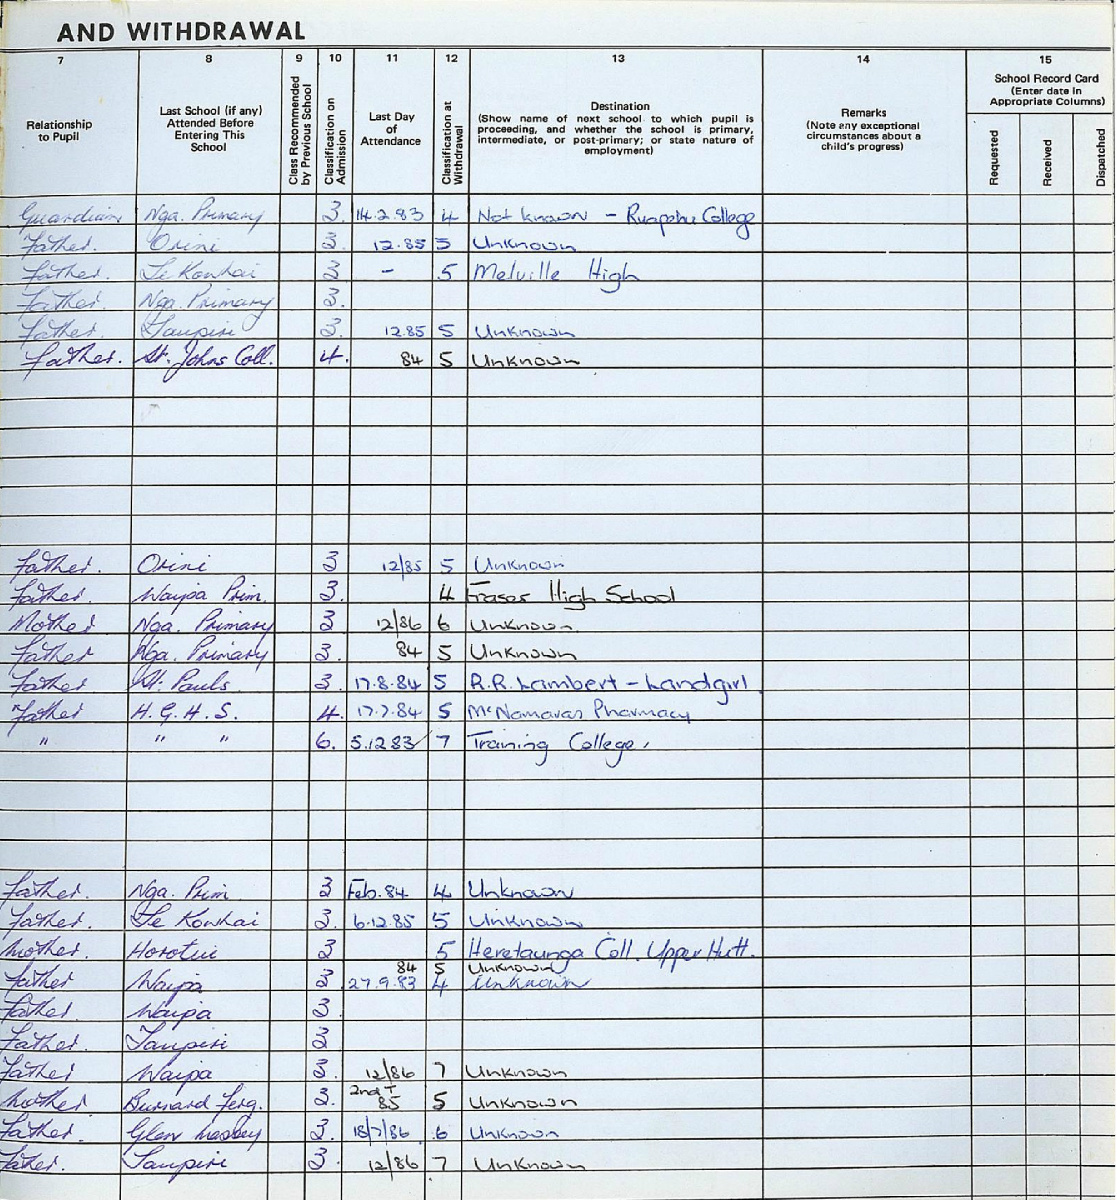 AND WITHDRAWAL
7 8 9 10 11 12 13 14 15
Relationship to Pupil
Last School (if any) Attended Before Entering This School
Class Recommended by Previous School
Classification on Admission
Last Day of Attendance
Classification at Withdrawal
Destination
(Show name of next school to which pupil is proceeding, and whether the school is primary, intermediate, or post-primary; or state nature of employment)
Remarks
(Note any exceptional circumstances about a child's progress)
School Record Card
(Enter date in Appropriate Columns)
Requested
Received
Dispatched
Guardian Nga. Primary 3. 14.2.83 4 Not known - Ruapehu College
Father. Orini 3. 12.85 5 Unknown
Father. Te Kowhai 3 - 5 Melville High
Father. Nga. Primary 3.
Father. Taupiri 3. 12.85 5 Unknown
Father. St. Johns Coll. 4. 84 5 Unknown
Father. Orini 3 12/85 5 Unknown
Father. Waipa Prim. 3. 4 Fraser High School
Mother Nga. Primary 3 12/86 6 Unknown
Father Nga. Primary 3. 84 5 Unknown
Father St. Pauls 3. 17.8.84 5 R.R. Lambert - Landgirl
Father H.G.H.S. 4. 17.7.84 5 McNamaras Pharmacy
" " " 6. 5.12.83 7 Training College.
Father. Nga. Prim 3 Feb. 84 4 Unknown
Father. Te Kowhai 3. 6.12.85 5 Unknown
Mother. Horotiu 3 5 Heretaunga Coll. Upper Hutt.
84 5 Unknown
Father Waipa 3 27.9.83 4 Unknown
Father Waipa 3.
Father. Taupiri 3
Father Waipa 3. 12/86 7 Unknown
Mother Bernard Ferg. 3. 2nd T 85 5 Unknown
Father Glen Massey 3. 18/7/86 6 Unknown
Father. Taupiri 3. 12/86 7 Unknown